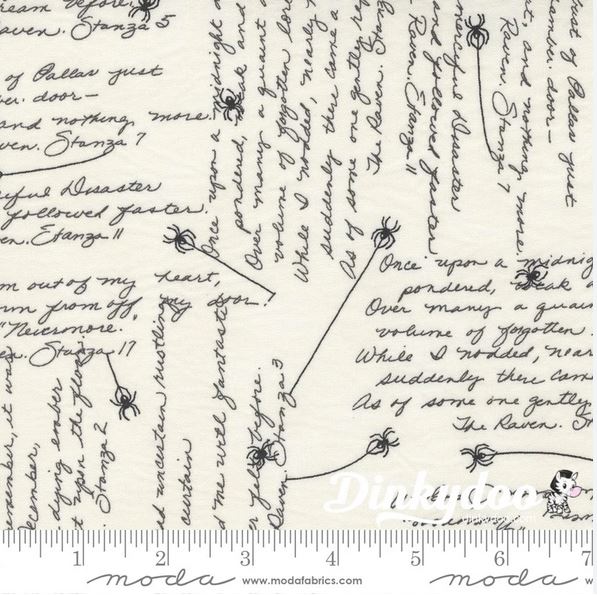 ream before.
aven. Stanza 5
of Pallas just
ver. door—
and nothing more.
ven. Stanza 7
ciful Disaster
followed faster
en. Stanza 11
m out of my heart,
rm from off, my door!
"Nevermore.
Stanza 17
ember, it was
December,
dying ember
t upon the floor.
Stanza 2
uncertain rustling
curtain
d me with fantastic
before.
Raven. Stanza 3
Once upon a midnight
pondered, weak and
Over many a quaint
volume of forgotten lore
While I nodded, nearly
suddenly there came a
As of some one gently
The Raven. Stanza
merciful Disaster
and followed faster
Raven. Stanza 11
bust of Pallas just
chamber. door—
and nothing more
Raven. Stanza 7
Once upon a midnig
pondered, weak a
Over many a quain
volume of forgotten
While I nodded, near
suddenly there cam
As of some one gently
The Raven. St
Dinkydoo
1 2 3 4 5 6 7
moda www.modafabrics.com moda